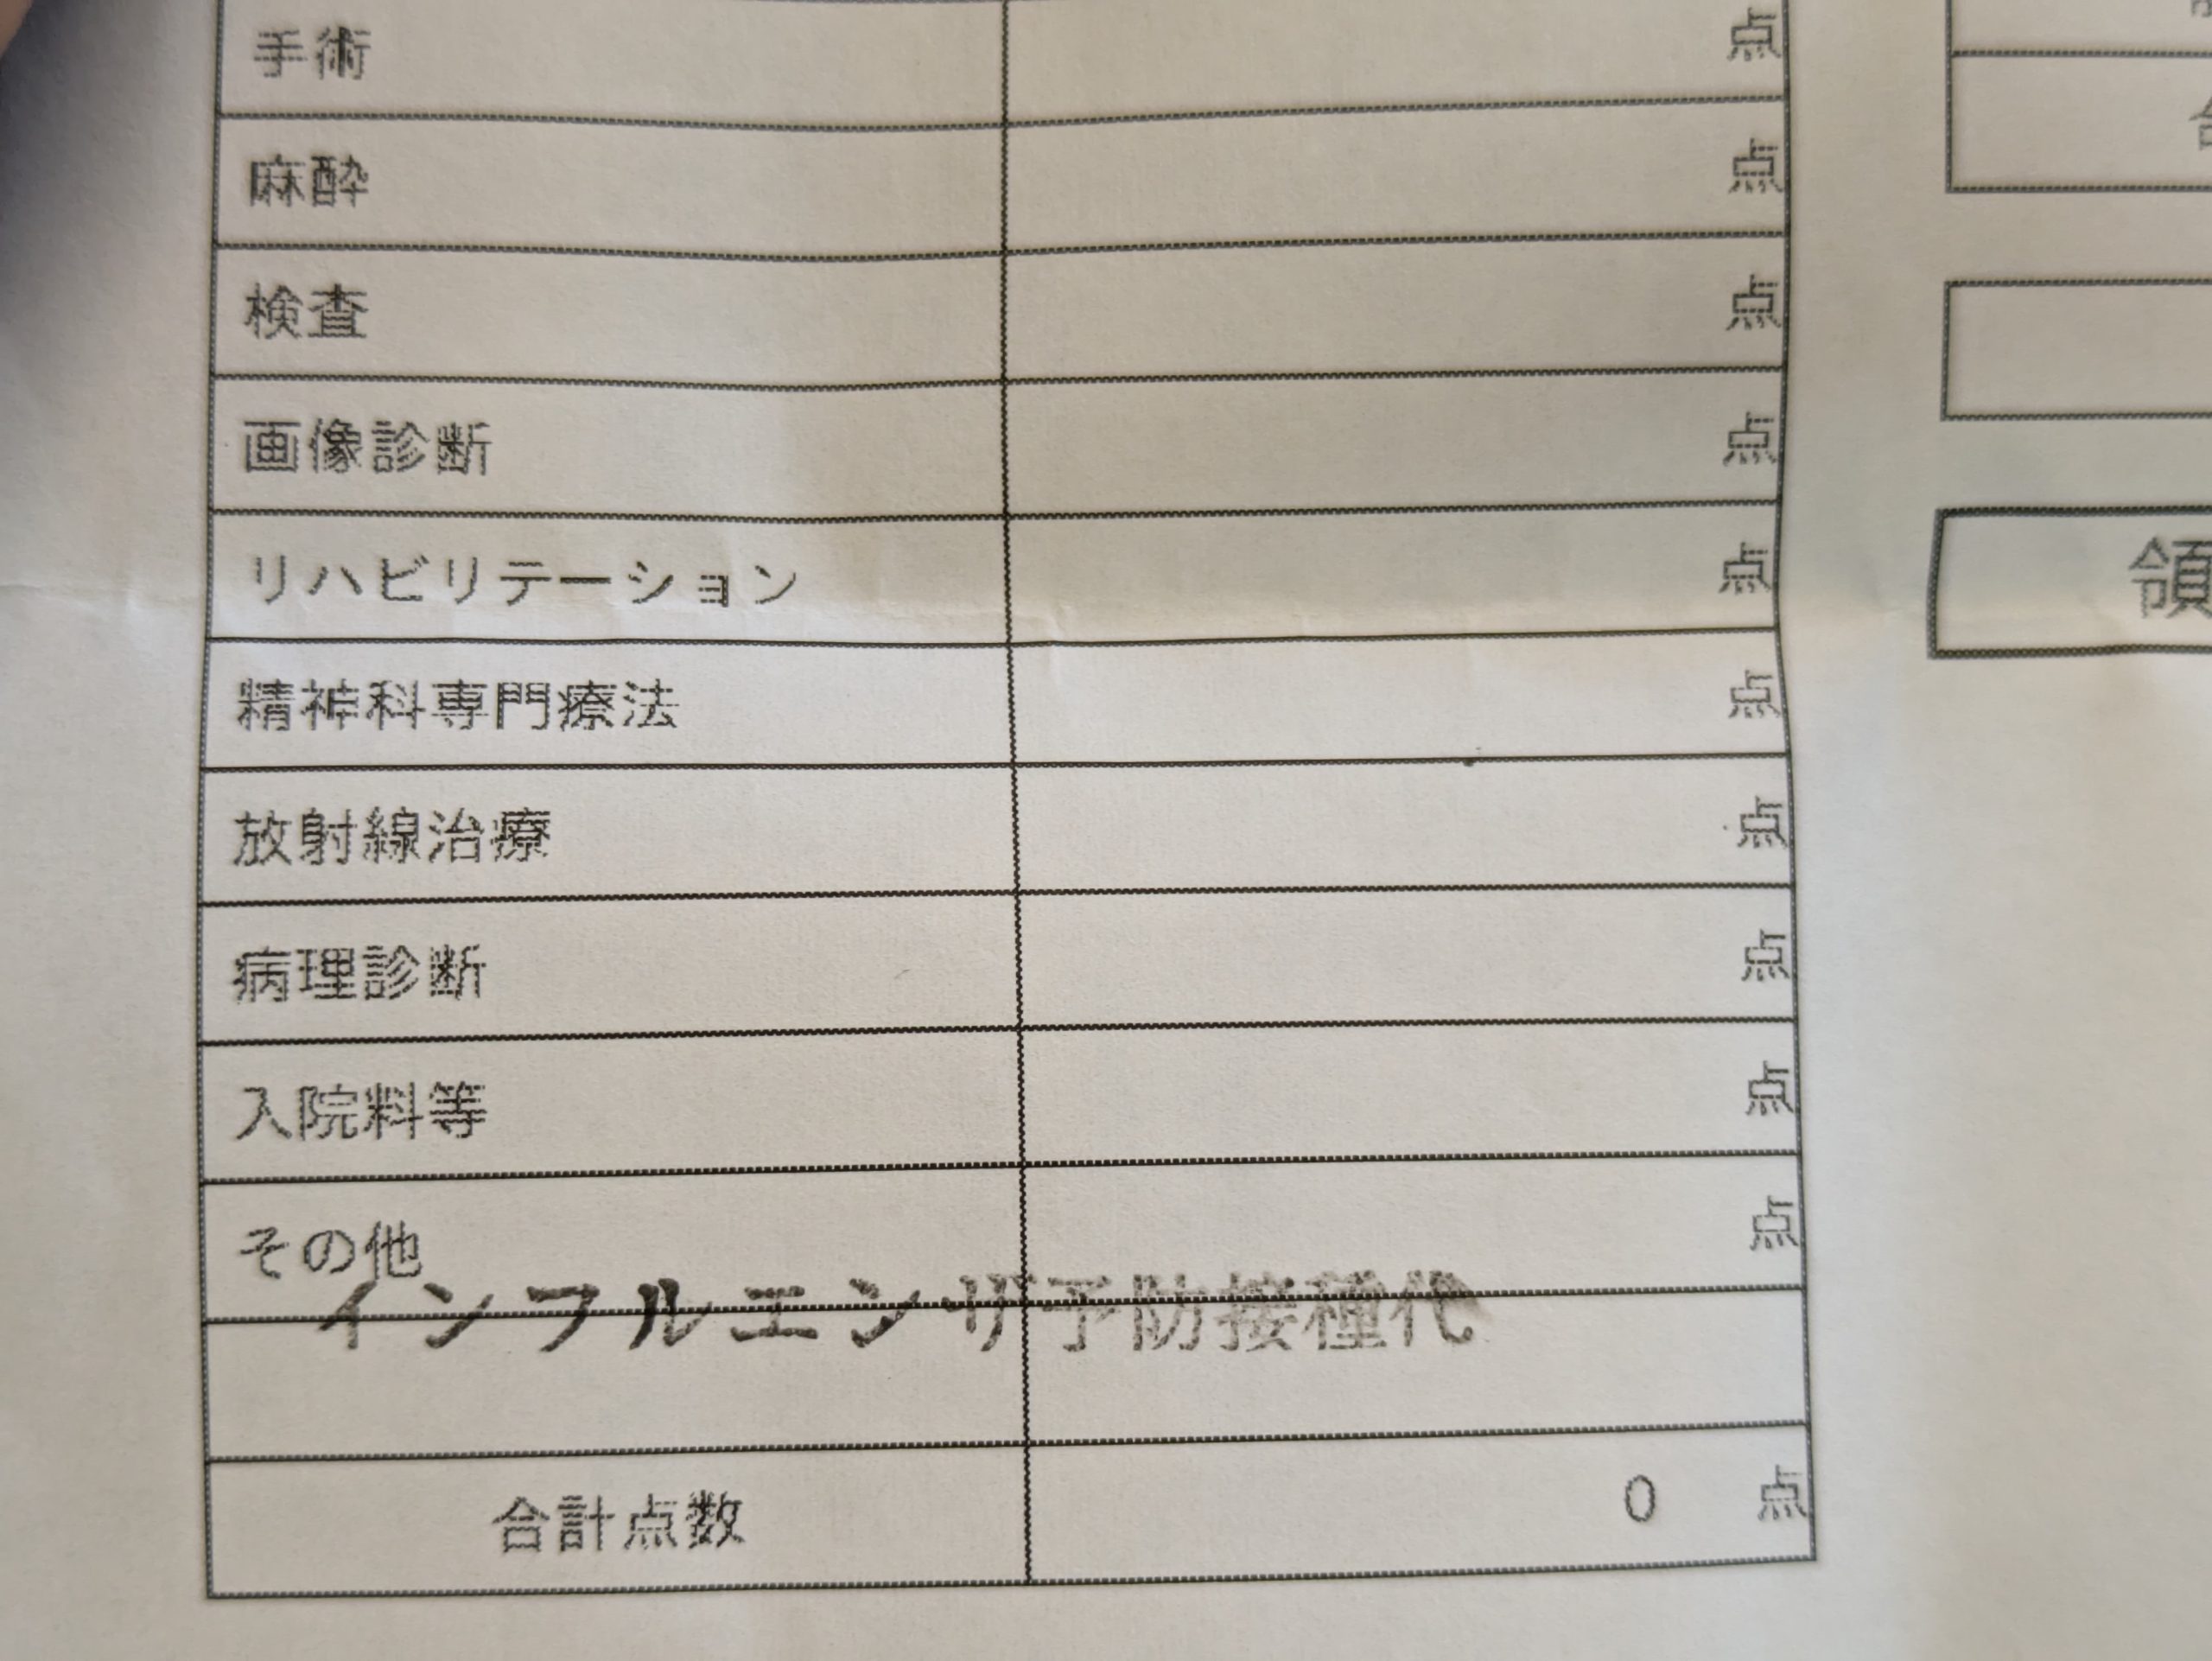 手術 点
麻酔 点
検査 点
画像診断 点
リハビリテーション 点
領
精神科専門療法 点
放射線治療 点
病理診断 点
入院料等 点
その他 点
インフルエンザ予防接種代
合計点数 0 点